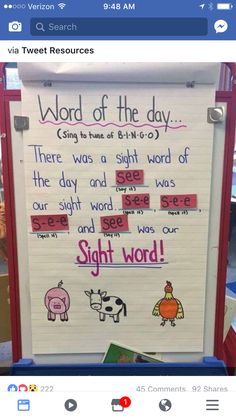 Verizon 9:48 AM
Search
via Tweet Resources
Word of the day...
(Sing to tune of B-I-N-G-O)
There was a sight word of
the day and see was
(say it)
our sight word. s-e-e, s-e-e,
(spell it) (spell it)
s-e-e, and see was our
(spell it) (say it)
Sight word!
222 45 Comments 92 Shares
1